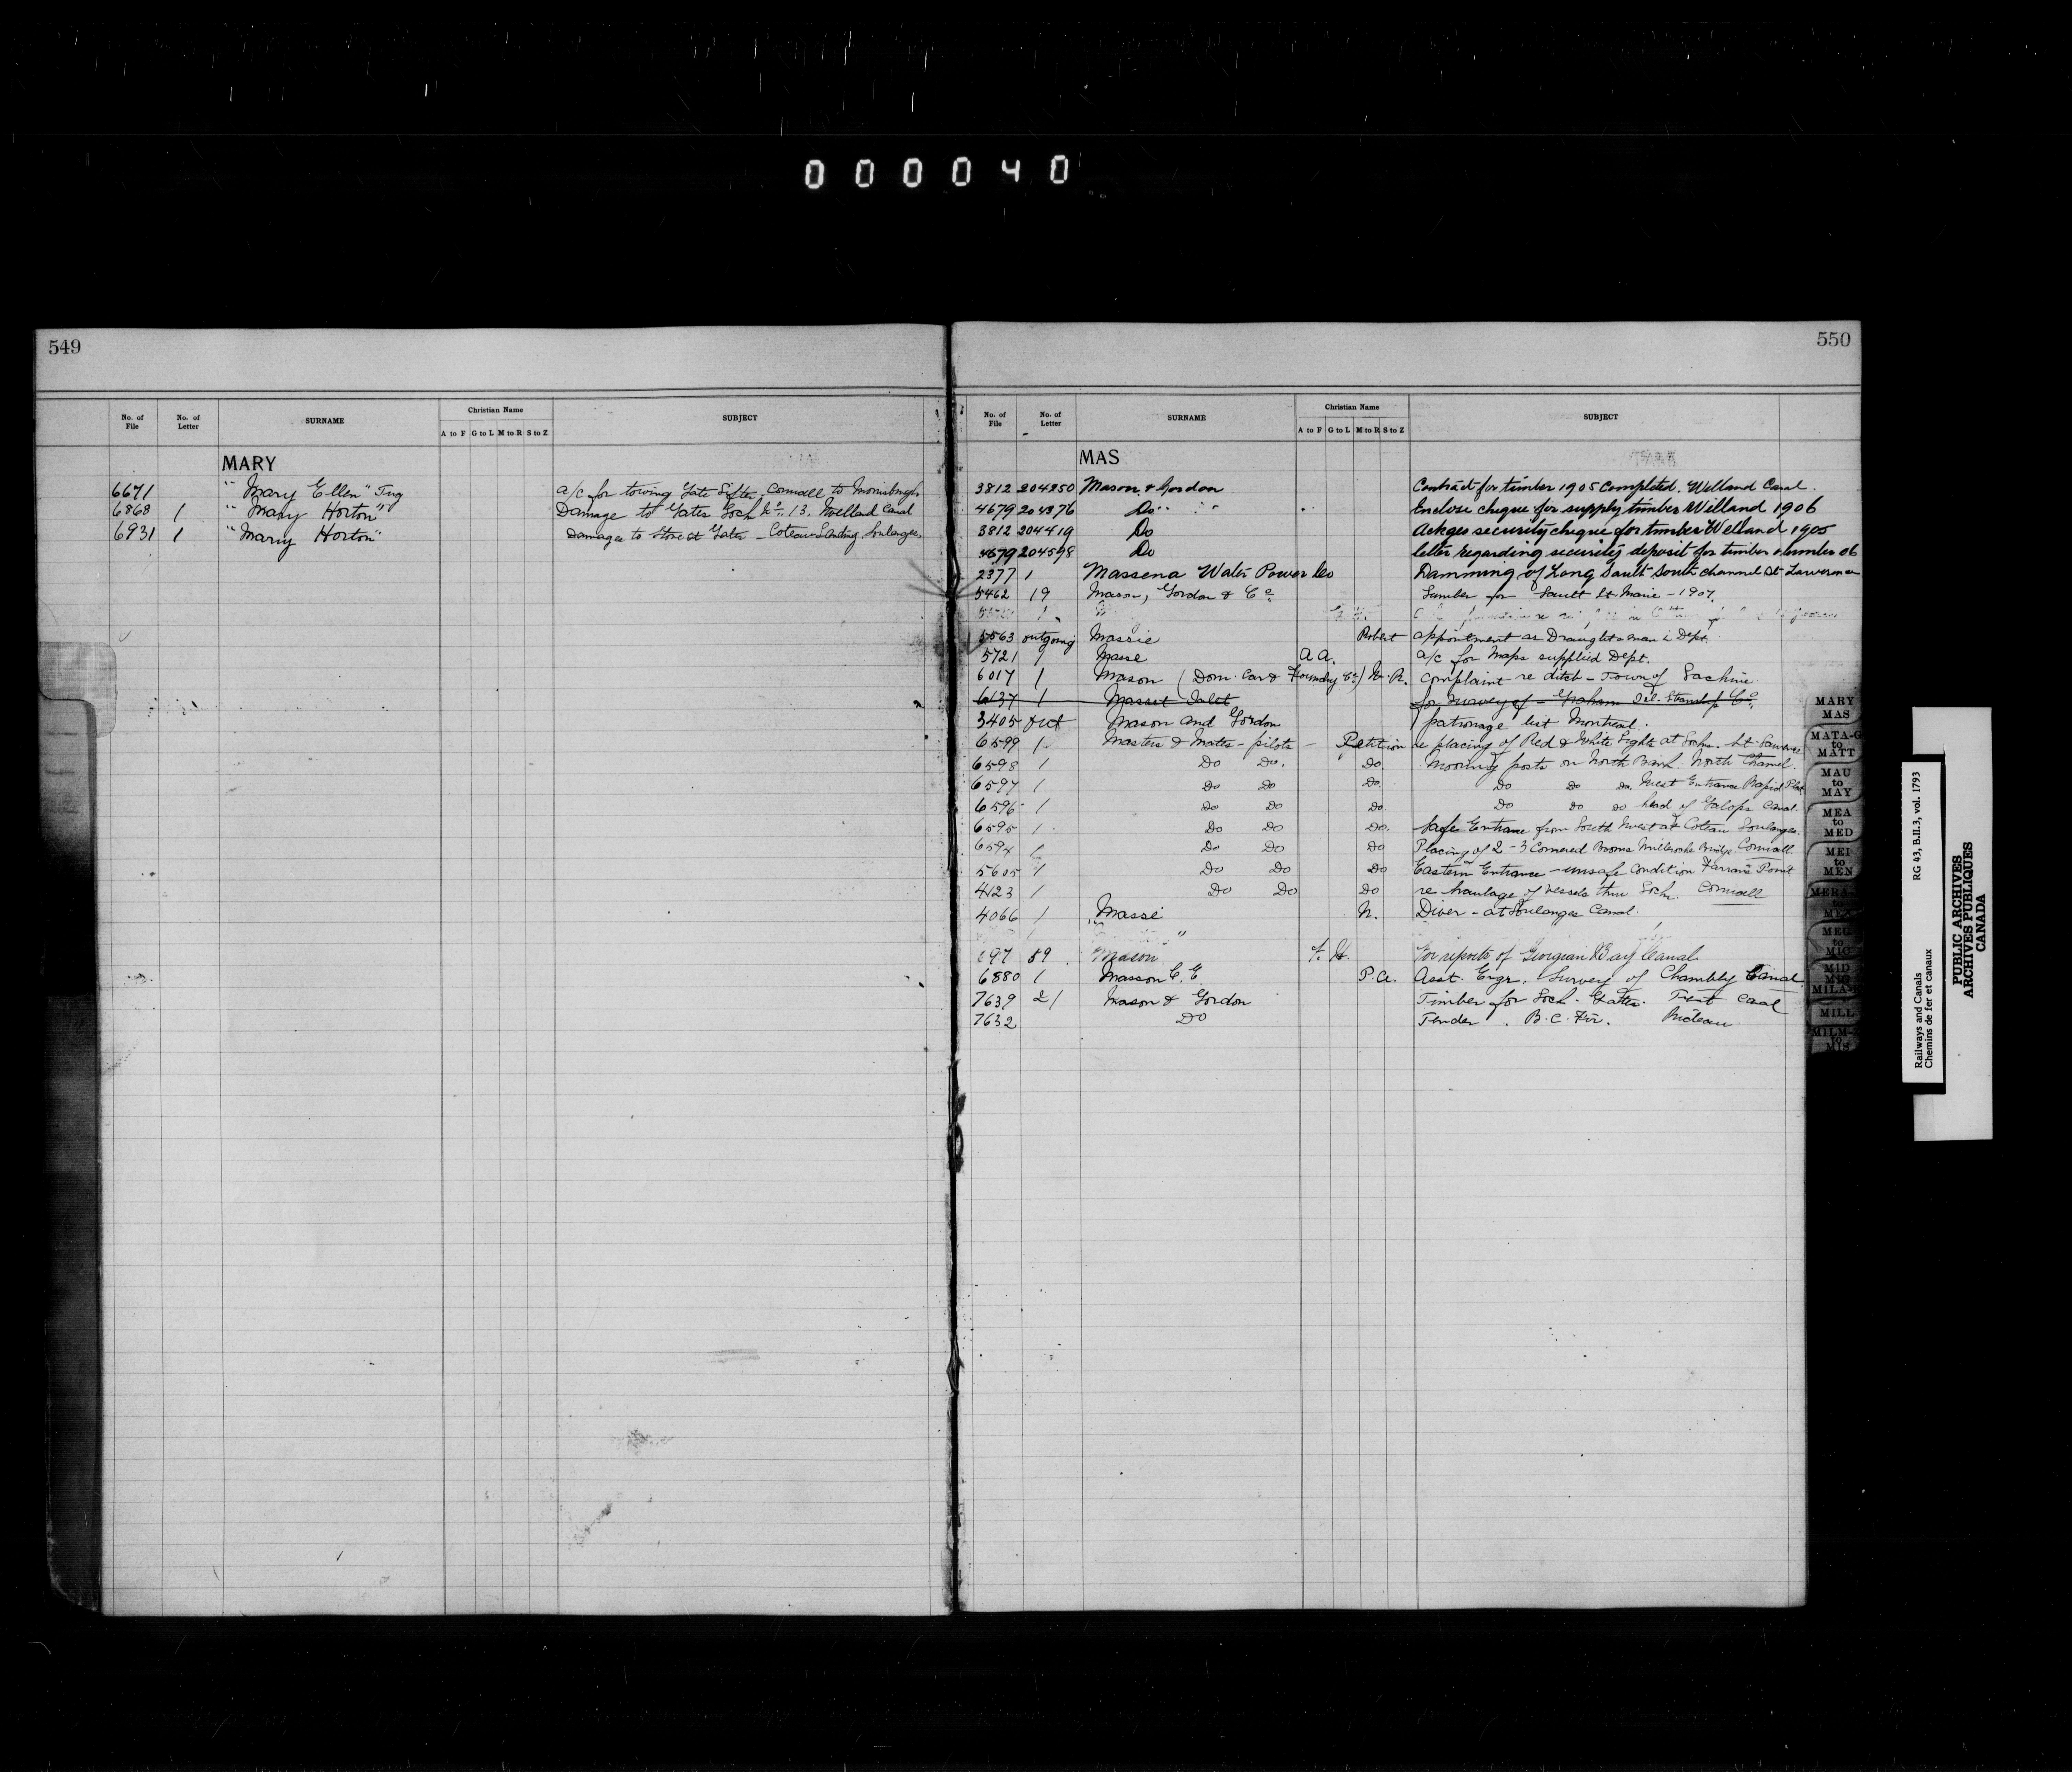 000040
549
No. of File No. of Letter SURNAME Christian Name A to F G to L M to R S to Z SUBJECT
MARY
6671 "Mary Ellen" Tug a/c for towing Gate Lifter. Cornwall to Morrisburgh
6868 1 "Mary Horton" Damage to Gates Lock No. 13. Welland Canal
6931 1 "Mary Horton" Damages to Gates - Coteau Landing Soulanges
550
No. of File No. of Letter SURNAME Christian Name A to F G to L M to R S to Z SUBJECT
MAS
3812 204250 Mason & Gordon Contract for timber 1905 Completed. Welland Canal.
4679 204376 Do Enclose cheque for supply timber Welland 1906
3812 204419 Do Ackges security cheque for timber Welland 1905
4679 204598 Do letter regarding security deposit for timber & lumber 06
2377 1 Massena Water Power Co Damming of Long Sault South channel St Lawrence
5462 19 Mason, Gordon & Co. Lumber for Sault St Marie - 1907.
5563 outgoing Massie Robert appointment as Draughtsman i Dept.
5721 1 Masse A A. a/c for Maps supplied Dept.
6017 1 Mason (Dom. Car & Foundry Co.) W. R. Complaint re ditch - Town of Lachine
6137 1 Masset Inlet for survey of - Graham Isl. Steamship Co.
3405 out Mason and Gordon patronage list Montreal.
6599 1 Masters & Mates - pilots - Petition re placing of Red & White Lights at Locks. St Lawrence
6598 1 Do Do. Do. Mooring posts on North Bank. North Channel.
6597 1 Do Do Do Do Do Do. West Entrance Rapid Plat
6596 1 Do Do Do Do Do Do head of Galops Canal
6595 1 Do Do Do. Safer Entrance from South West at Coteau Soulanges.
6594 1 Do Do Do Placing of 2 - 3 Cornered Booms Milleroche Bridge Cornwall
5605 1 Do Do Do Eastern Entrance - unsafe condition Farran's Point
4123 1 Do Do Do re haulage of vessels thru Lock. Cornwall
4066 1 Masse N. Diver - at Soulanges Canal.
697 59 Mason For reports of Georgian Bay Canal
6880 1 Masson C. E P. A. Asst. Engr. Survey of Chambly Canal
7639 21 Mason & Gordon Timber for Lock. Gates. Trent Canal
7632 Do Tender. B.C. Fir. Rideau
MARY
MAS
MATA-G
to
MATT
MAU
to
MAY
MEA
to
MED
MEI
to
MEN
MERA-
to
MEU
to
MIC
MID
MIG
MILA-
MILL
MILM-
to
MIS
Railways and Canals RG 43, B.II.3, vol. 1793
Chemins de fer et canaux
PUBLIC ARCHIVES
ARCHIVES PUBLIQUES
CANADA